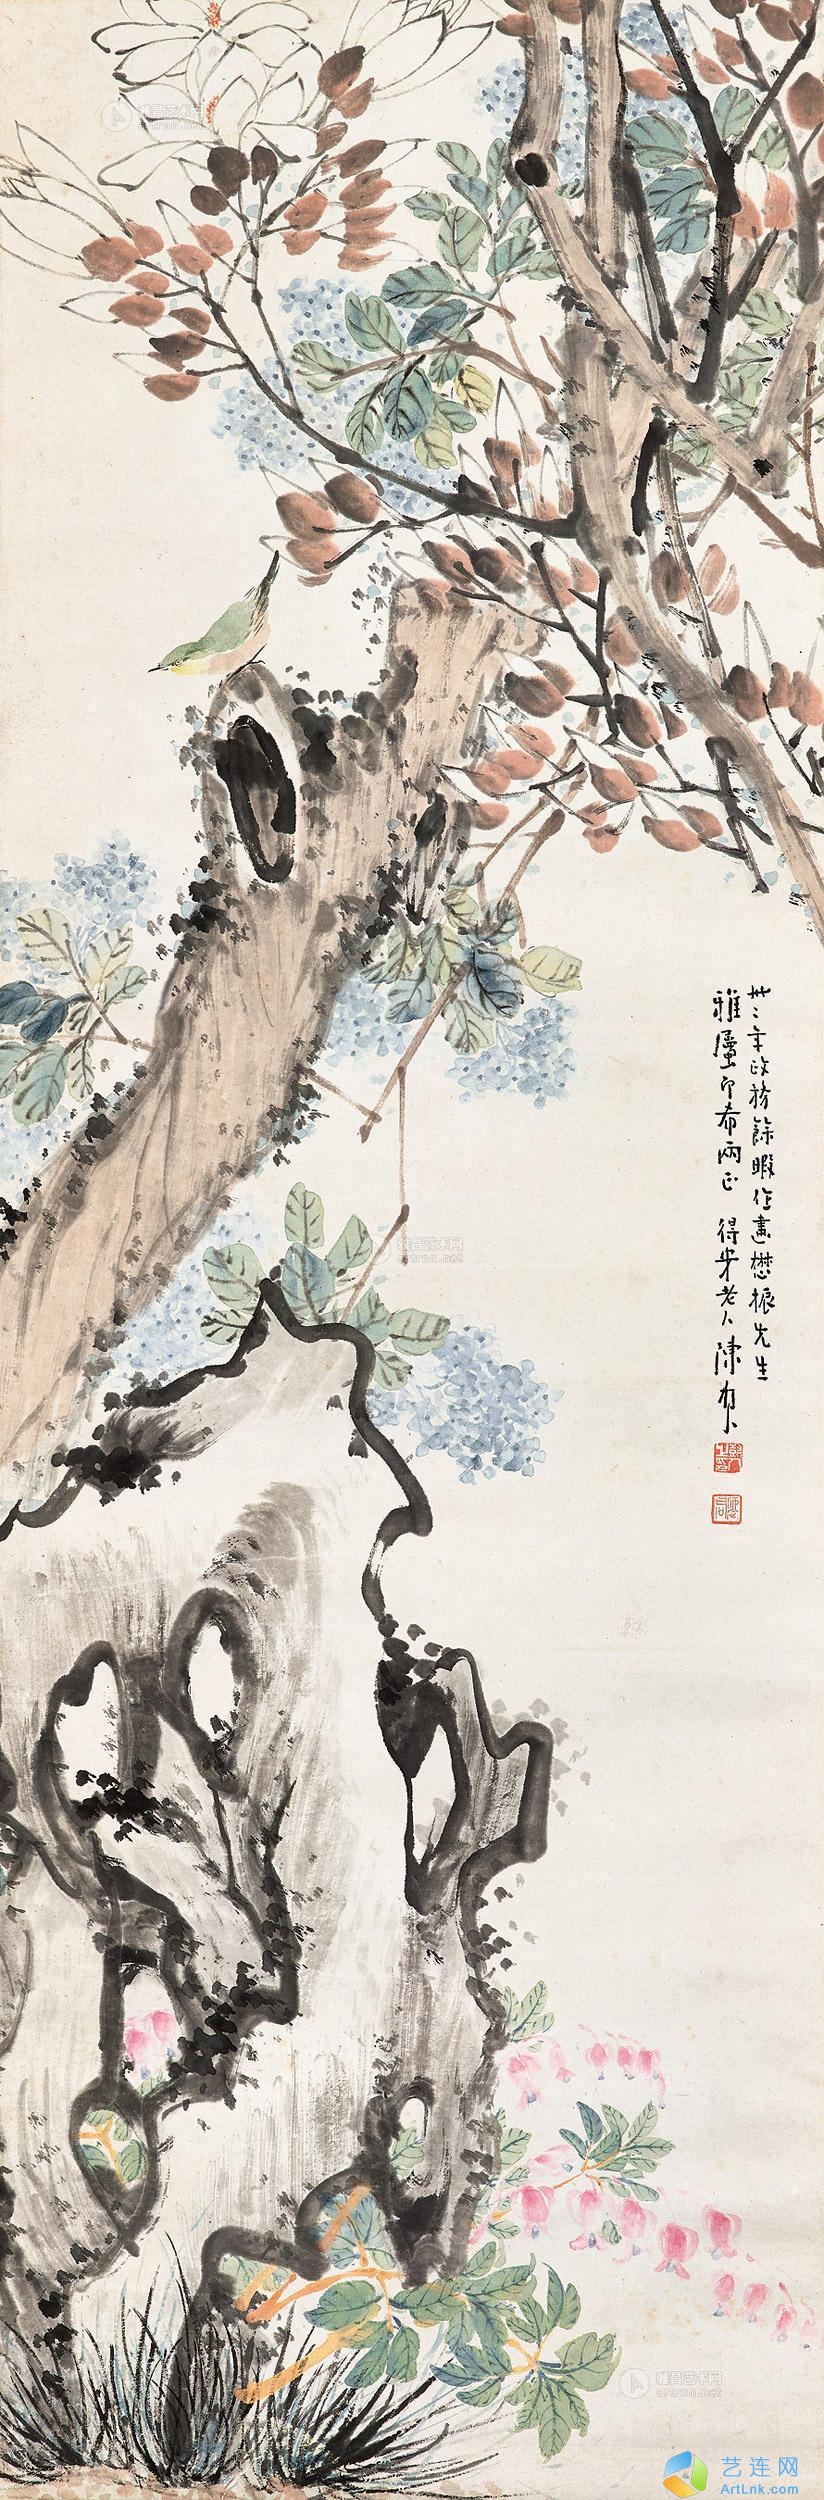 卅二年政務餘暇作畫懋振先生
雅屬即希兩正 得米老人陳年
雅昌艺术网
artron.net
雅昌艺术网
artron.net
雅昌艺术网
artron.net
艺连网
ArtLnk.com